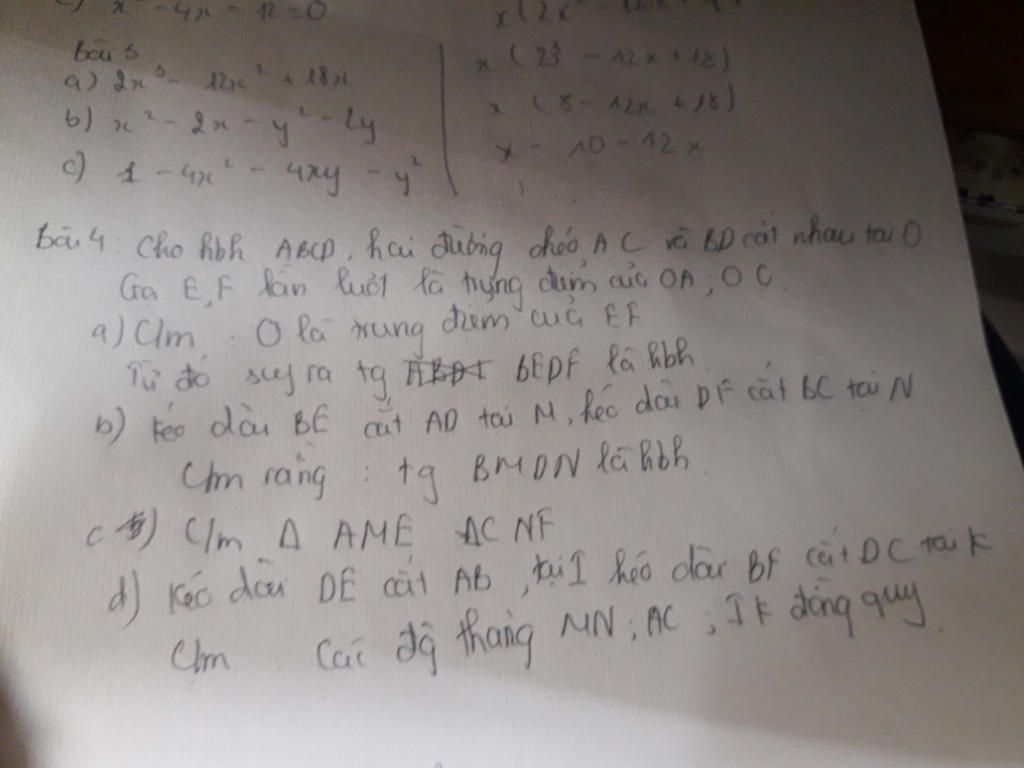 c) x² - 4x - 12 = 0
Bài 3
a) 2x³ - 12x² + 18x
b) x² - 2x - y² - 2y
c) 1 - 4x² - 4xy - y²
x (2³ - 12x + 18)
x (8 - 12x + 18)
x - 10 - 12x
Bài 4: Cho hbh ABCD, hai đường chéo AC và BD cắt nhau tại O
Gọi E, F lần lượt là trung điểm của OA; OC.
a) C/m : O là trung điểm của EF
Từ đó suy ra tg BEDF là hbh
b) Kéo dài BE cắt AD tại M, kéo dài DF cắt BC tại N
C/m rằng : tg BMDN là hbh.
c) C/m Δ AME CNF
d) Kéo dài DE cắt AB, tại I kéo dài BF cắt DC tại K
C/m Các độ thẳng MN; AC; IK đồng quy.